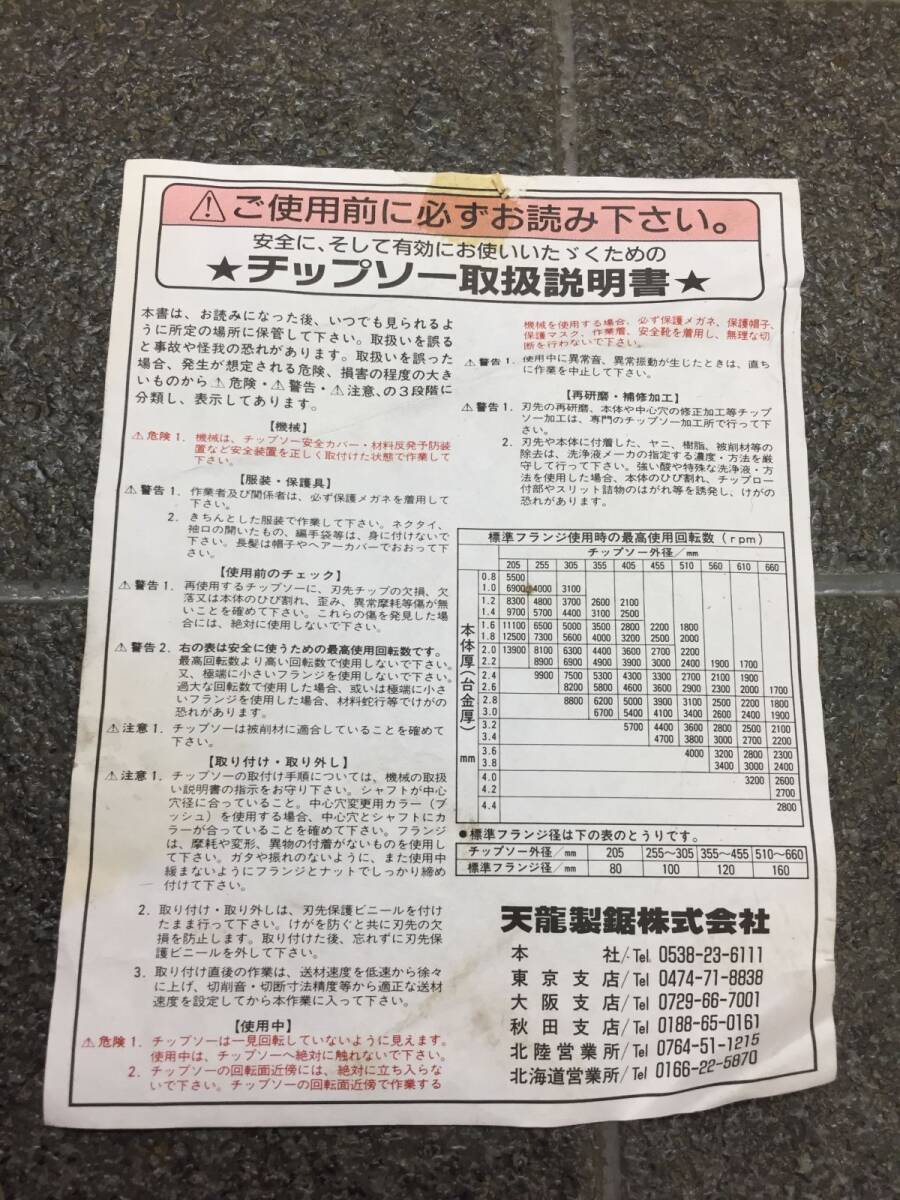 ⚠ご使用前に必ずお読み下さい。
安全に、そして有効にお使いいたゞくための
★チップソー取扱説明書★
本書は、お読みになった後、いつでも見られるよ
うに所定の場所に保管して下さい。取扱いを誤る
と事故や怪我の恐れがあります。取扱いを誤った
場合、発生が想定される危険、損害の程度の大き
いものから⚠危険・⚠警告・⚠注意、の3段階に
分類し、表示してあります。
【機械】
⚠危険1. 機械は、チップソー安全カバー・材料反発予防装
置など安全装置を正しく取付けた状態で作業して
下さい。
【服装・保護具】
⚠警告1. 作業者及び関係者は、必ず保護メガネを着用して
下さい。
2. きちんとした服装で作業して下さい。ネクタイ、
袖口の開いたもの、編手袋等は、身に付けないで
下さい。長髪は帽子やヘアーカバーでおおって下
さい。
【使用前のチェック】
⚠警告1. 再使用するチップソーに、刃先チップの欠損、欠
落又は本体のひび割れ、歪み、異常摩耗等傷が無
いことを確めて下さい。これらの傷を発見した場
合には、絶対に使用しないで下さい。
⚠警告2. 右の表は安全に使うための最高使用回転数です。
最高回転数より高い回転数で使用しないで下さい。
又、極端に小さいフランジを使用しないで下さい。
過大な回転数で使用した場合、或いは極端に小さ
いフランジを使用した場合、材料蛇行等でけがの
恐れがあります。
⚠注意1. チップソーは被削材に適合していることを確めて
下さい。
【取り付け・取り外し】
⚠注意1. チップソーの取付け手順については、機械の取扱
い説明書の指示をお守り下さい。シャフトが中心
穴径に合っていること。中心穴変更用カラー(ブ
ッシュ)を使用する場合、中心穴とシャフトにカ
ラーが合っていることを確めて下さい。フランジ
は、摩耗や変形、異物の付着がないものを使用し
て下さい。ガタや振れのないように、また使用中
緩まないようにフランジとナットでしっかり締め
付けて下さい。
2. 取り付け・取り外しは、刃先保護ビニールを付け
たまま行って下さい。けがを防ぐと共に刃先の欠
損を防止します。取り付けた後、忘れずに刃先保
護ビニールを外して下さい。
3. 取り付け直後の作業は、送材速度を低速から徐々
に上げ、切削音・切断寸法精度等から適正な送材
速度を設定してから本作業に入って下さい。
【使用中】
⚠危険1. チップソーは一見回転していないように見えます。
使用中は、チップソーへ絶対に触れないで下さい。
2. チップソーの回転面近傍には、絶対に立ち入らな
いで下さい。チップソーの回転面近傍で作業する
機械を使用する場合、必ず保護メガネ、保護帽子、
保護マスク、作業着、安全靴を着用し、無理な切
断を行わないで下さい。
⚠警告1. 使用中に異常音、異常振動が生じたときは、直ち
に作業を中止して下さい。
【再研磨・補修加工】
⚠警告1. 刃先の再研磨、本体や中心穴の修正加工等チップ
ソー加工は、専門のチップソー加工所で行って下
さい。
2. 刃先や本体に付着した、ヤニ、樹脂、被削材等の
除去は、洗浄液メーカの指定する濃度・方法を厳
守して行って下さい。強い酸や特殊な洗浄液・方
法を使用した場合、本体のひび割れ、チップロー
付部やスリット詰物のはがれ等を誘発し、けがの
恐れがあります。
標準フランジ使用時の最高使用回転数(rpm)
チップソー外径/mm
205 255 305 355 405 455 510 560 610 660
本体厚(台金厚) mm
0.8 5500
1.0 6900 4000 3100
1.2 8300 4800 3700 2600 2100
1.4 9700 5700 4400 3100 2500
1.6 11100 6500 5000 3500 2800 2200 1800
1.8 12500 7300 5600 4000 3200 2500 2000
2.0 13900 8100 6300 4400 3600 2700 2200
2.2 8900 6900 4900 3900 3000 2400 1900 1700
2.4 9900 7500 5300 4300 3300 2700 2100 1900
2.6 8200 5800 4600 3600 2900 2300 2000 1700
2.8 8800 6200 5000 3900 3100 2500 2200 1800
3.0 6700 5400 4100 3400 2600 2400 1900
3.2 5700 4400 3600 2800 2500 2100
3.4 4700 3800 3000 2700 2200
3.6 4000 3200 2800 2300
3.8 3400 3000 2400
4.0 3200 2600
4.2 2700
4.4 2800
●標準フランジ径は下の表のとうりです。
チップソー外径/mm 205 255~305 355~455 510~660
標準フランジ径/mm 80 100 120 160
天龍製鋸株式会社
本社/Tel 0538-23-6111
東京支店/Tel 0474-71-8838
大阪支店/Tel 0729-66-7001
秋田支店/Tel 0188-65-0161
北陸営業所/Tel 0764-51-1215
北海道営業所/Tel 0166-22-5870